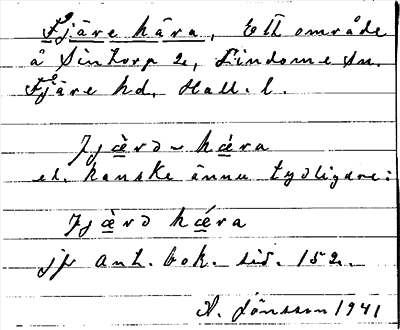 Fjäre kära, Ett område
å Sintorp 2, Lindome sn.
Fjäre hd, Hall. l.
Fjærd ~ kæra
el. kanske ännu tydligare:
Fjærd kæra
jfr ant. bok. sid. 152.
A. Jönsson 1941